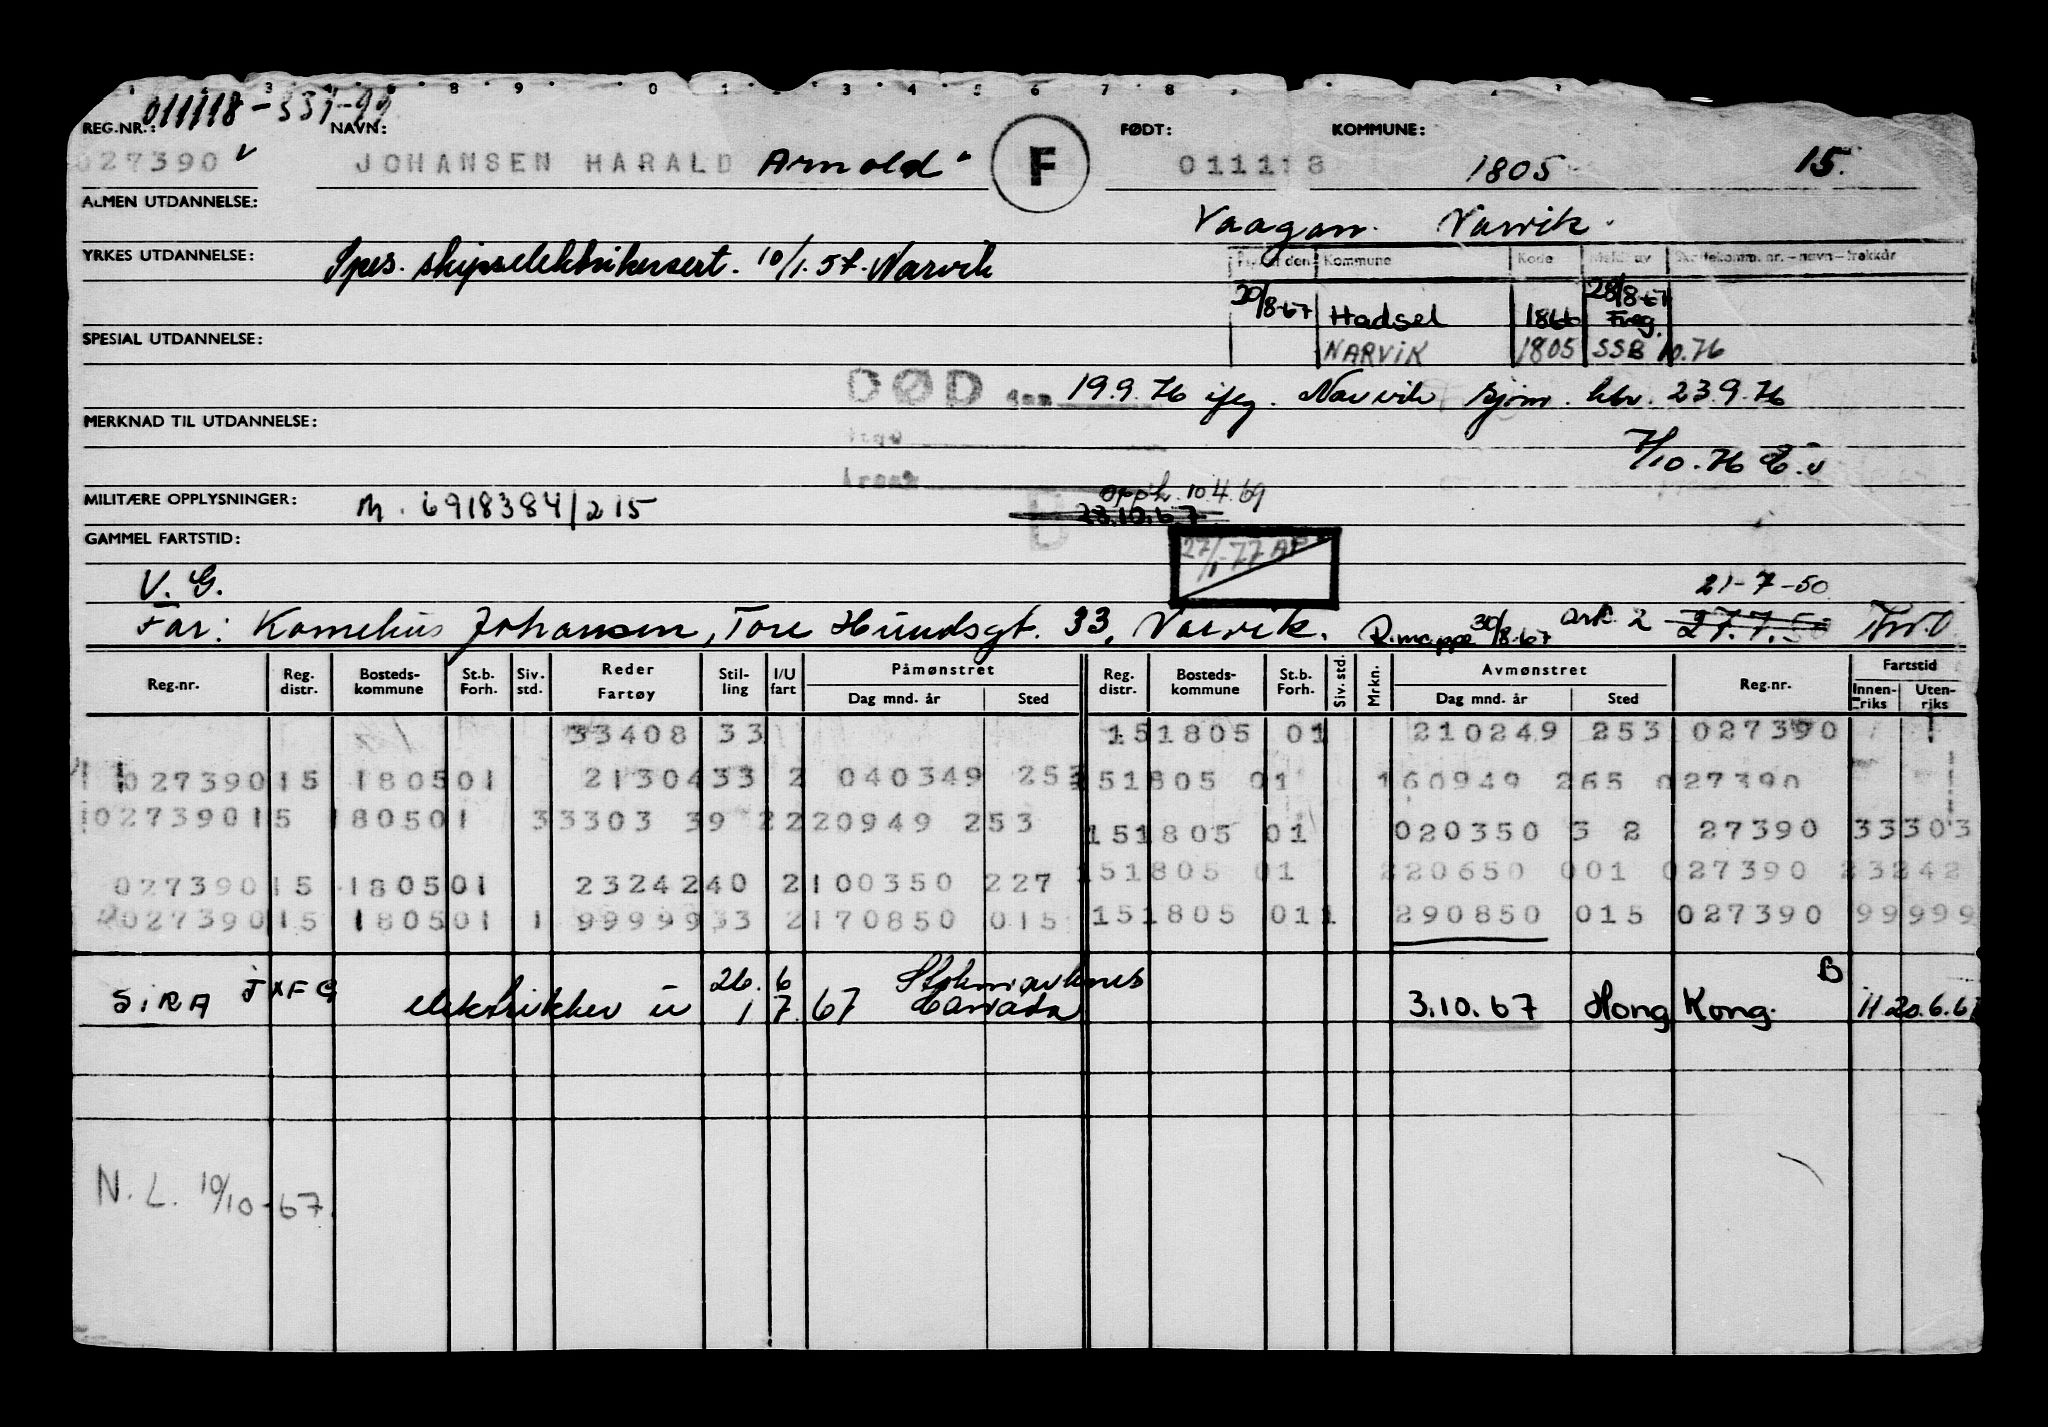 011118-331-99
REG.NR.: NAVN: FØDT: KOMMUNE:
027390 V JOHANSEN HARALD Arnold F 011118 1805 15.
ALMEN UTDANNELSE:
Vaagan. Narvik.
YRKES UTDANNELSE: Spes. skipselektrikersert. 10/1.57. Narvik
Kommune Kode
30/8-67 Hadsel 1866 28/8-67 Freg.
SPESIAL UTDANNELSE: NARVIK 1805 SSB 10.76
DØD den 19.9.76 Narvik 23.9.76
MERKNAD TIL UTDANNELSE:
7/10.76
MILITÆRE OPPLYSNINGER: M. 6918384/215 opph. 10.4.69
28.10.67
GAMMEL FARTSTID: 27/1-77 AP
V. G. 21-7-50
Far: Kornelius Johansen, Tore Hundsgt. 33, Narvik. R.mappe 30/8-67 ark. 2 27.7.50
Reg.nr. Reg. distr. Bosteds-kommune St.b. Forh. Siv. std. Reder Fartøy Stil-ling I/U fart Påmønstret Dag mnd. år Sted Reg. distr. Bosteds-kommune St.b. Forh. Siv. std. Mrkn. Avmønstret Dag mnd. år Sted Reg.nr. Fartstid Innen-riks Uten-riks
33408 33 151805 01 210249 253 027390
02739015 180501 2130433 2 040349 253 151805 01 160949 265 027390
02739015 180501 33303 39 2220949 253 151805 01 020350 3 2 27390 33303
02739015 180501 2324240 2100350 227 151805 01 220650 001 027390 23242
02739015 180501 1 9999933 2170850 015 151805 011 290850 015 027390 99999
SIRA JXFG elektrikker u 26.6 Stokmarknes
1 7. 67 Canada 3.10.67 Hong Kong. B H 20.6.67
N. L. 10/10-67.